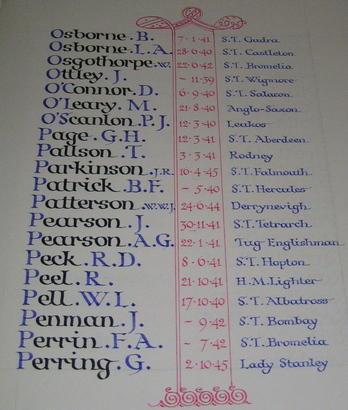 Osborne. B. 7·1·41 S.T. Gadra
Osborne. L.A. 28·6·40 S.T. Castleton
Osgothorpe. W. 22·6·42 S.T. Bromelia
Ottley. J. – 11·39 S.T. Wigmore
O'Connor. D. 6·9·40 S.T. Salacon
O'Leary. M. 21·8·40 Anglo-Saxon
O'Scanlon. P.J. 12·3·40 Leukos
Page. G.H. 12·3·41 S.T. Aberdeen
Pallson. T. 3·3·41 Rodney
Parkinson. J.R. 10·4·45 S.T. Falmouth
Patrick. B.F. – 5·40 S.T. Hercules
Patterson. W.W.J. 24·6·44 Derrynevigh
Pearson. J. 30·11·41 S.T. Tetrarch
Pearson. A.G. 22·1·41 Tug Englishman
Peck. R.D. 8·6·41 S.T. Hopton
Peel. R. 21·10·41 H.M.Lighter
Pell. W.L. 17·10·40 S.T. Albatross
Penman. J. – 9·42 S.T. Bombay
Perrin. F.A. – 7·42 S.T. Bromelia
Perring. G. 2·10·45 Lady Stanley